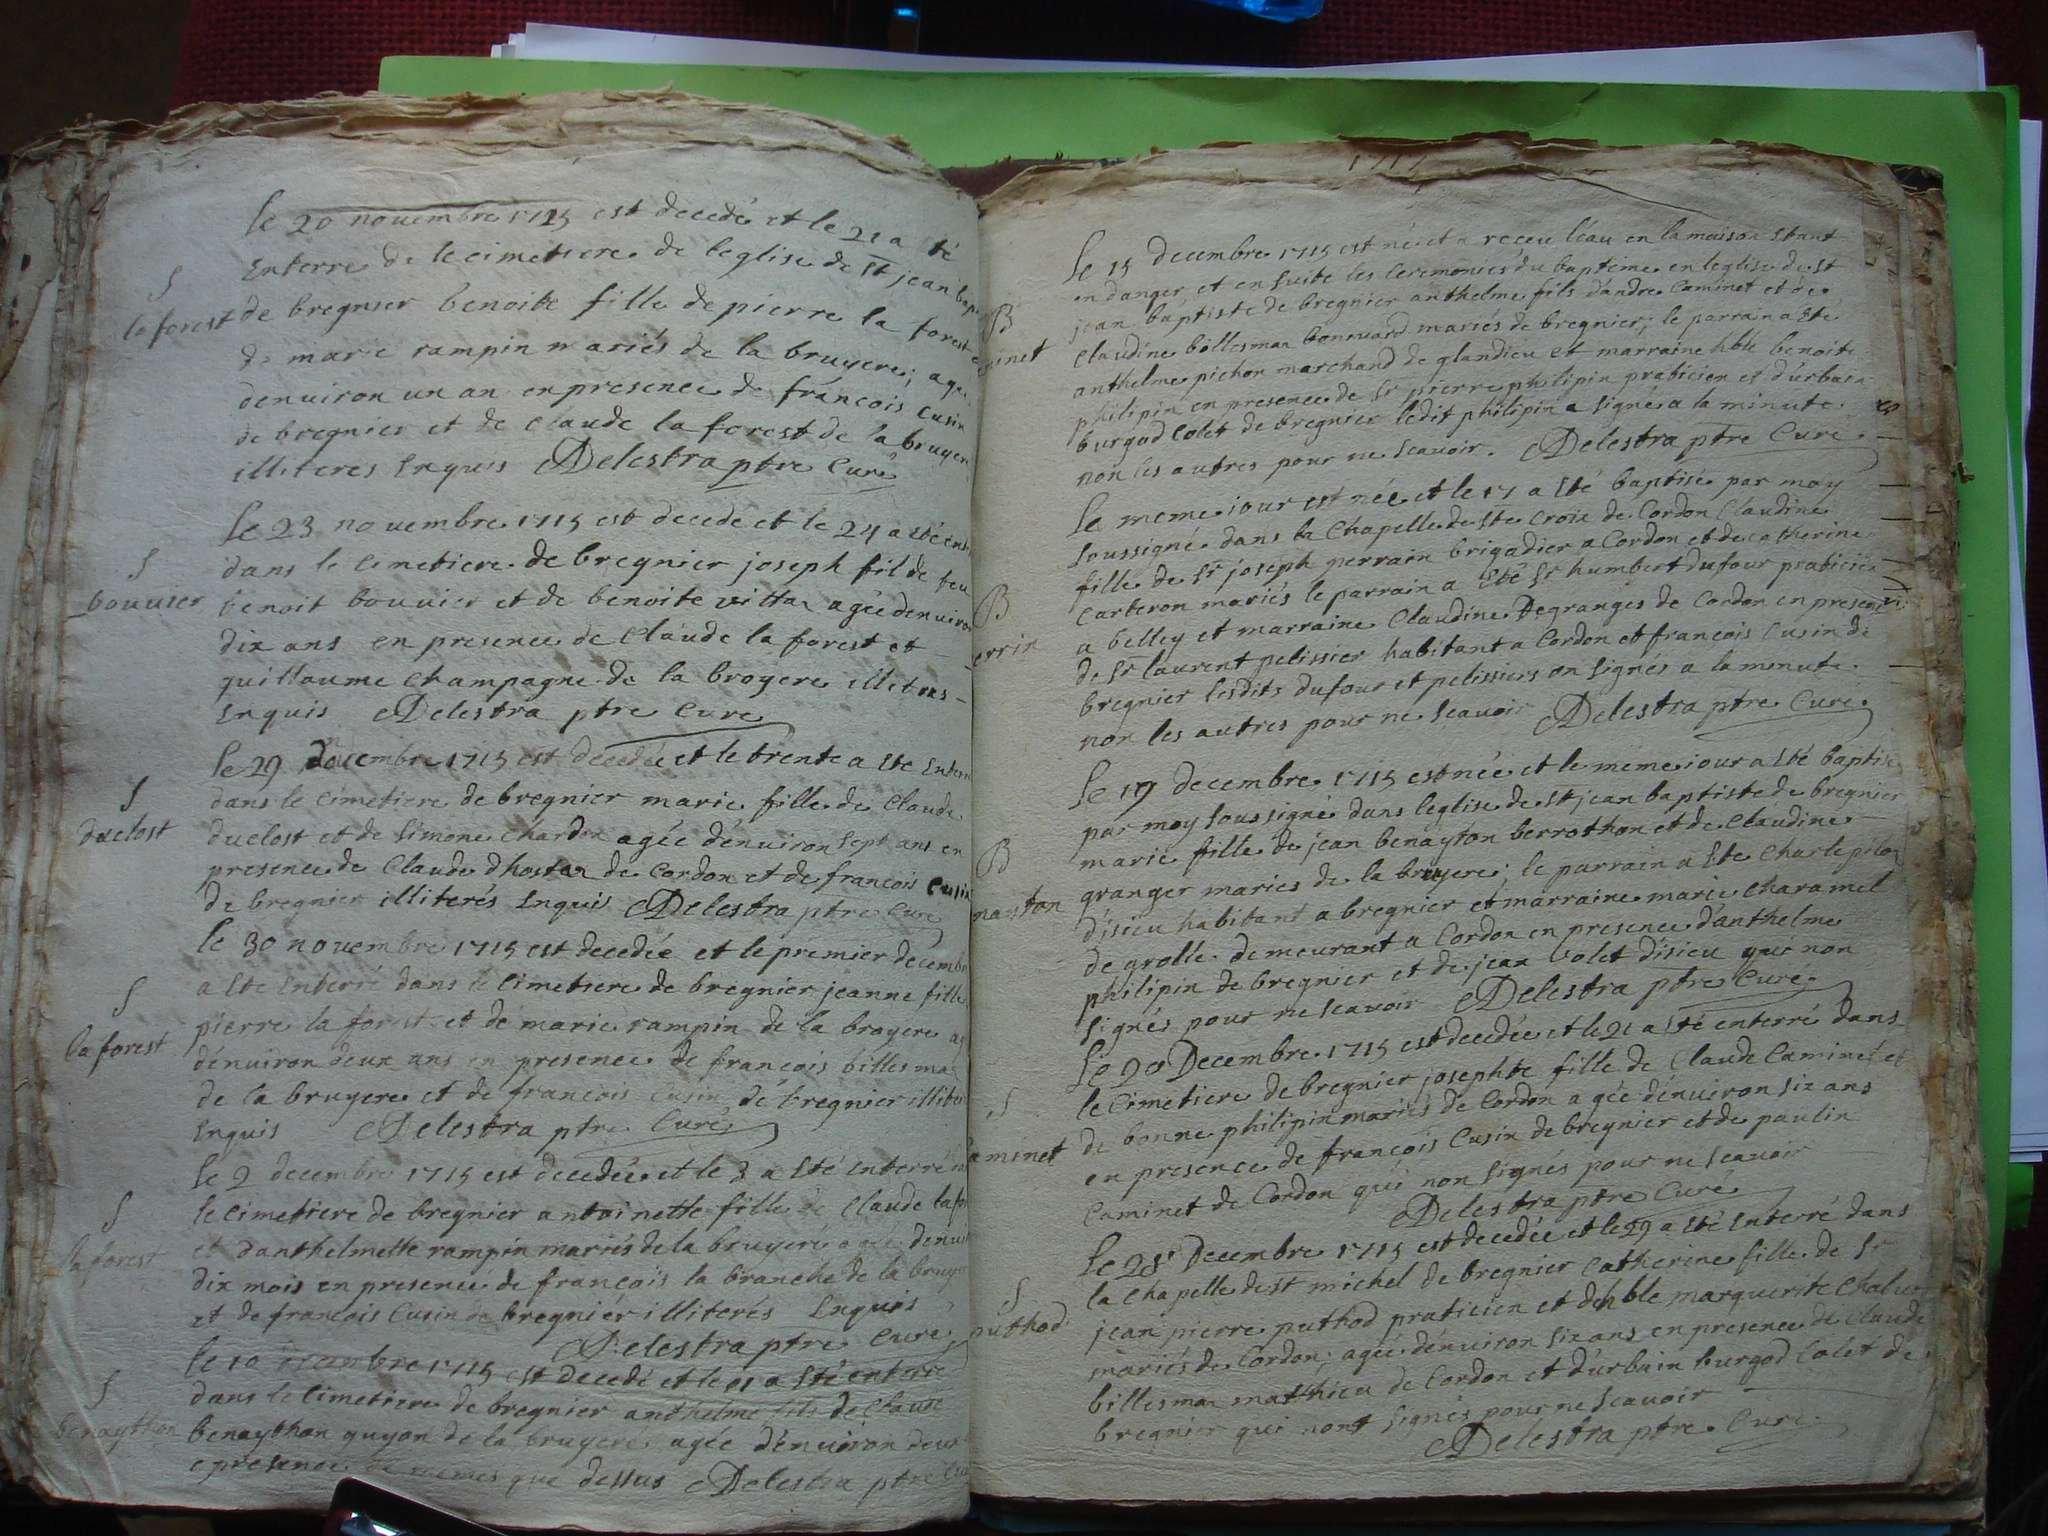 le 20 novembre 1715 est decedé et le 21 a été
Enterre de le cimetiere de leglise de st jean bapt
S
la forest
de bregnier benoite fille de pierre la forest
de marie rampin mariés de la bruyere; agee
denuiron un an en presence de francois cusin
de bregnier et de claude la forest de la bruyere
illiteres Enquis Delestra ptre Curé
le 23 novembre 1715 est decede et le 24 a eté ent
S
bouuier
dans le cimetiere de bregnier joseph fil de feu
benoit bouuier et de benoite vittoz agée denuiron
dix ans en presence de Claude la forest et
guillaume Champagne de la broyere illetres
Enquis Delestra ptre Cure
le 29 decembre 1715 est decedée et le trente a Ete Enterré
S
duclost
dans le cimetiere de bregnier marie fille de Claude
duclost et de Simone Chardon agée dénuiron sept ans en
presence de Claude dhostaz de Cordon et de francois Cusin
de bregnier illiterés Enquis Delestra ptre Cure
le 30 novembre 1715 est decedée et le premier decembre
S
la forest
a Ete Enterré dans le cimetiere de bregnier jeanne fille
pierre la forest et de marie rampin de la broyere ag
dénuiron deux ans en presence de francois billesma
de la bruyere et de francois Cusin de bregnier illite
Enquis Delestra ptre Curé
le 2 decembre 1715 est decedée et le 3 a Eté enterré
S
la forest
le cimetiere de bregnier antoinette fille de Claude lafor
et danthelmette rampin mariés de la bruyere agée denui
dix mois en presence de francois la branche de la bruye
et de francois Cusin de bregniér illiterés Enquis
Delestra ptre Cure
le 10 decembre 1715 est decedé et le 11 a Eté enterré
S
benaython
dans le Cimetiere de bregnier anthelme fils de Claude
benaython guyon de la bruyere agée dénuiron deux
presence de memes que dessus Delestra ptre Cure
1715
Le 15 decembre 1715 est né et a receu leau en la maison Etant
en danger et en suite les Ceremonies du baptême en leglise de st
B
caminet
jean baptiste de bregnier anthelme fils dandre Caminet et de
Claudine billesmaz bonnard mariés de bregnier; le parrain a Ete
anthelme pichon marchand de glandieu et marraine hble benoite
philipin en presence de Sr pierre philipin praticien et durbain
burgod Colet de bregnier ledit philipin a signé a la minute
non les autres pour ne scauoir. Delestra ptre Curé
Le meme iour est née et le 17 a Eté baptisé par moy
Soussigné dans la Chapelle de ste Croix de Cordon Claudine
B
perrin
fille de Sr joseph perrain brigadier a Cordon et de catherine
Carteron mariés le parrain a Eté Sr humbert dufour praticien
a belley et marraine Claudine Degranges de Cordon en presence
de Sr laurent pelissier habitant a Cordon et francois Cusin de
bregnier lesdits dufour et pelissiers on signés a la menute
non les autres pour ne scauoir Delestra ptre Cure.
Le 19 decembre 1715 est née et le même iour a Eté baptisé
par moy soussigné dans leglise de st jean baptiste de bregnier
B
naiton
marie fille de jean benayton berrothon et de Claudine
granger maries de la bruyere; le parrain a Ete Charle prion
disieu habitant a bregnier et marraine marie Charamel
de grolle demeurant a Cordon en presence danthelme
philipin de bregnier et de jean volet disieu que non
signés pour ne scauoir Delestra ptre Cure
Le 20 Decembre 1715 est decedée et le 21 a Eté enterré dans
S
caminet
le Cimetiere de bregnier josephte fille de Claude Caminet et
de bonne philipin mariés de Cordon agée dénuiron six ans
en presence de francois Cusin de bregnier et de paulin
Caminet de Cordon qui non signés pour ne scauoir
Delestra ptre Curé
Le 28 Decembre 1715 est decedée et le 29 a Eté Enterré dans
S
puthod
la Chapelle de st michel de bregnier Catherine fille de Sr
jean pierre puthod praticien et de hble marguerite Chaluet
mariés de Cordon; agée dénuiron six ans en presence de Claude
billesmaz matthieu de Cordon et durbain burgod Colet de
bregnier qui nont signés pour ne Scauoir
Delestra ptre Curé